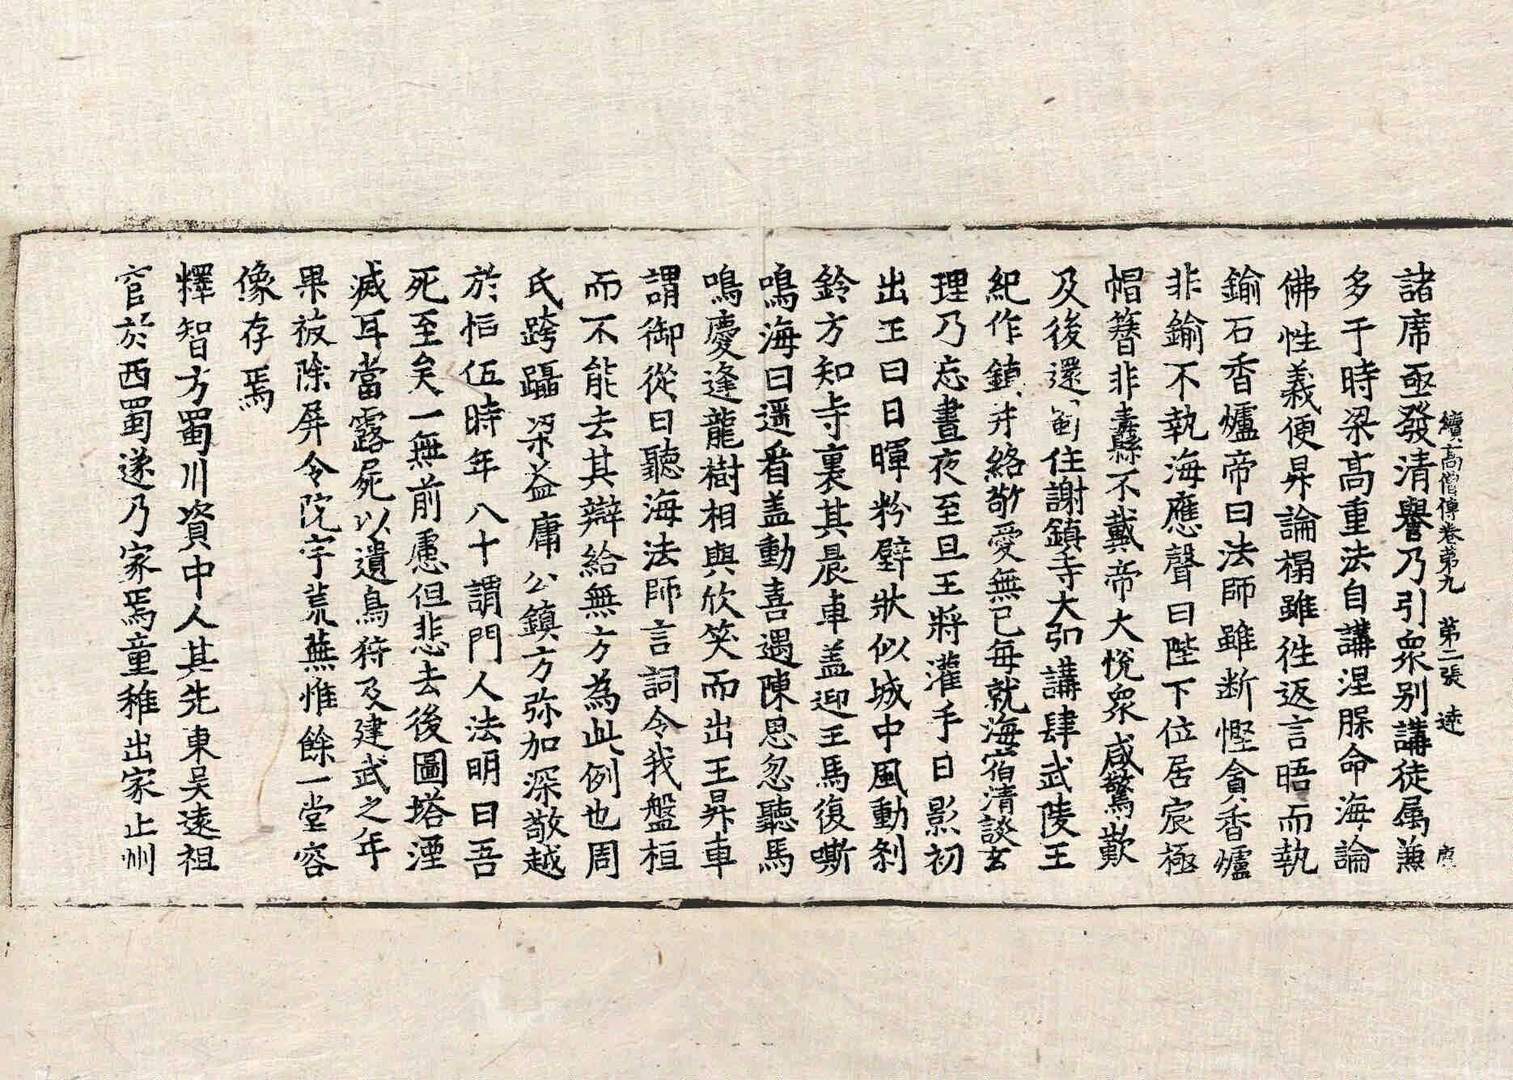 續高僧傳卷第九 第二張 逵
諸席亟發清譽乃引衆别講徒属兼
多于時梁高重法自講涅脵命海論
佛性義便昇論榻雖徃返言晤而執
鍮石香爐帝曰法師雖断慳貪香爐
非鍮不執海應聲曰陛下位居宸極
帽簪非纛縣不戴帝大悅衆咸驚歎
及後還蜀住謝鎮寺大弘講肆武陵王
紀作鎮井絡敬愛無已每就海宿清談玄
理乃忘晝夜至旦王將灌手日影初
出王曰日暉粉壁狀似城中風動刹
鈴方知寺裏其晨車盖迎王馬復嘶
鳴海曰遥看盖動喜遇陳思忽聽馬
鳴慶逢龍樹相與欣笑而出王昇車
謂御從曰聽海法師言詞令我盤桓
而不能去其辯給無方為此例也周
氏跨躡梁益庸公鎮方弥加深敬越
於恒伍時年八十謂門人法明曰吾
死至矣一無前慮但悲去後圖塔湮
滅耳當露屍以遺鳥狩及建武之年
果被除屏令院宇荒蕪惟餘一堂容
像存焉
釋智方蜀川資中人其先東吴遠祖
官於西蜀遂乃家焉童稚出家止州